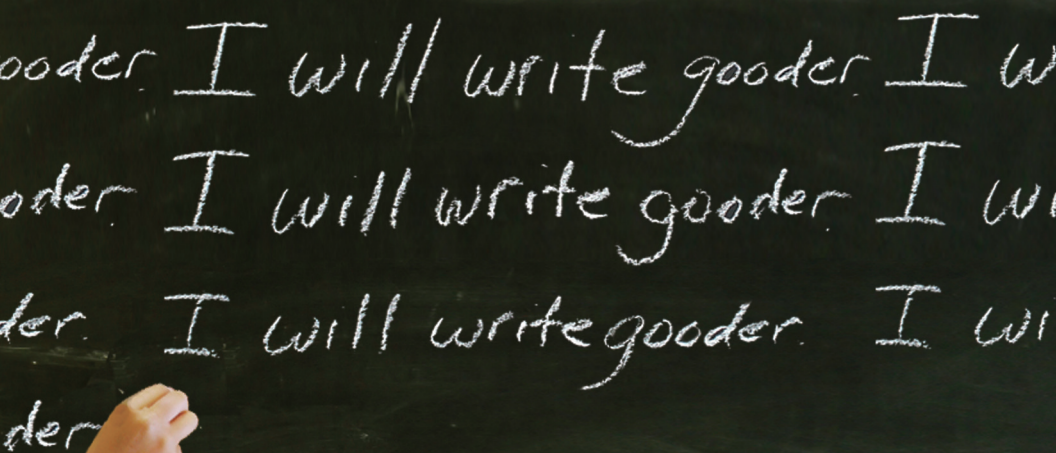 ooder. I will write gooder. I w
oder. I will write gooder. I wi
der. I will write gooder. I wi
der